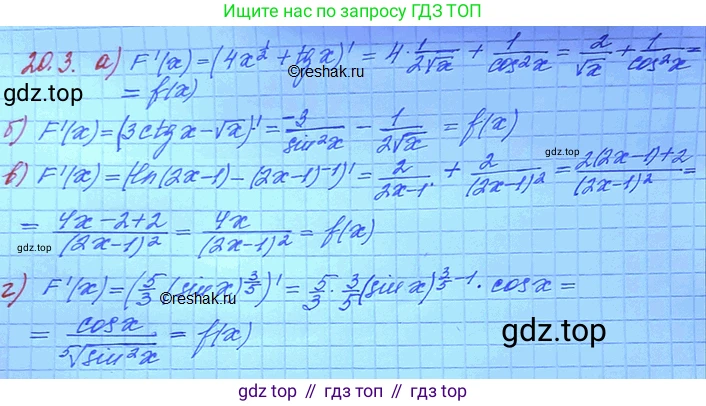 Ищите нас по запросу ГДЗ ТОП
20.3. а) F'(x) = (4x^{1/2} + tg x)' = 4 · 1/(2√x) + 1/cos²x = 2/√x + 1/cos²x =
©reshak.ru
gdz.top
= f(x)
б) F'(x) = (3ctg x - √x)' = -3/sin²x - 1/(2√x) = f(x)
в) F'(x) = (ln(2x-1) - (2x-1)^{-1})' = 2/(2x-1) + 2/(2x-1)² = (2(2x-1)+2)/(2x-1)² =
= (4x-2+2)/(2x-1)² = 4x/(2x-1)² = f(x)
gdz.top
г) F'(x) = (5/3 (sin x)^{3/5})' = 5/3 · 3/5 (sin x)^{3/5 - 1} · cos x =
©reshak.ru
= cos x/⁵√(sin²x) = f(x)
gdz.top
gdz.top // гдз.top // gdz.top // гдз.top